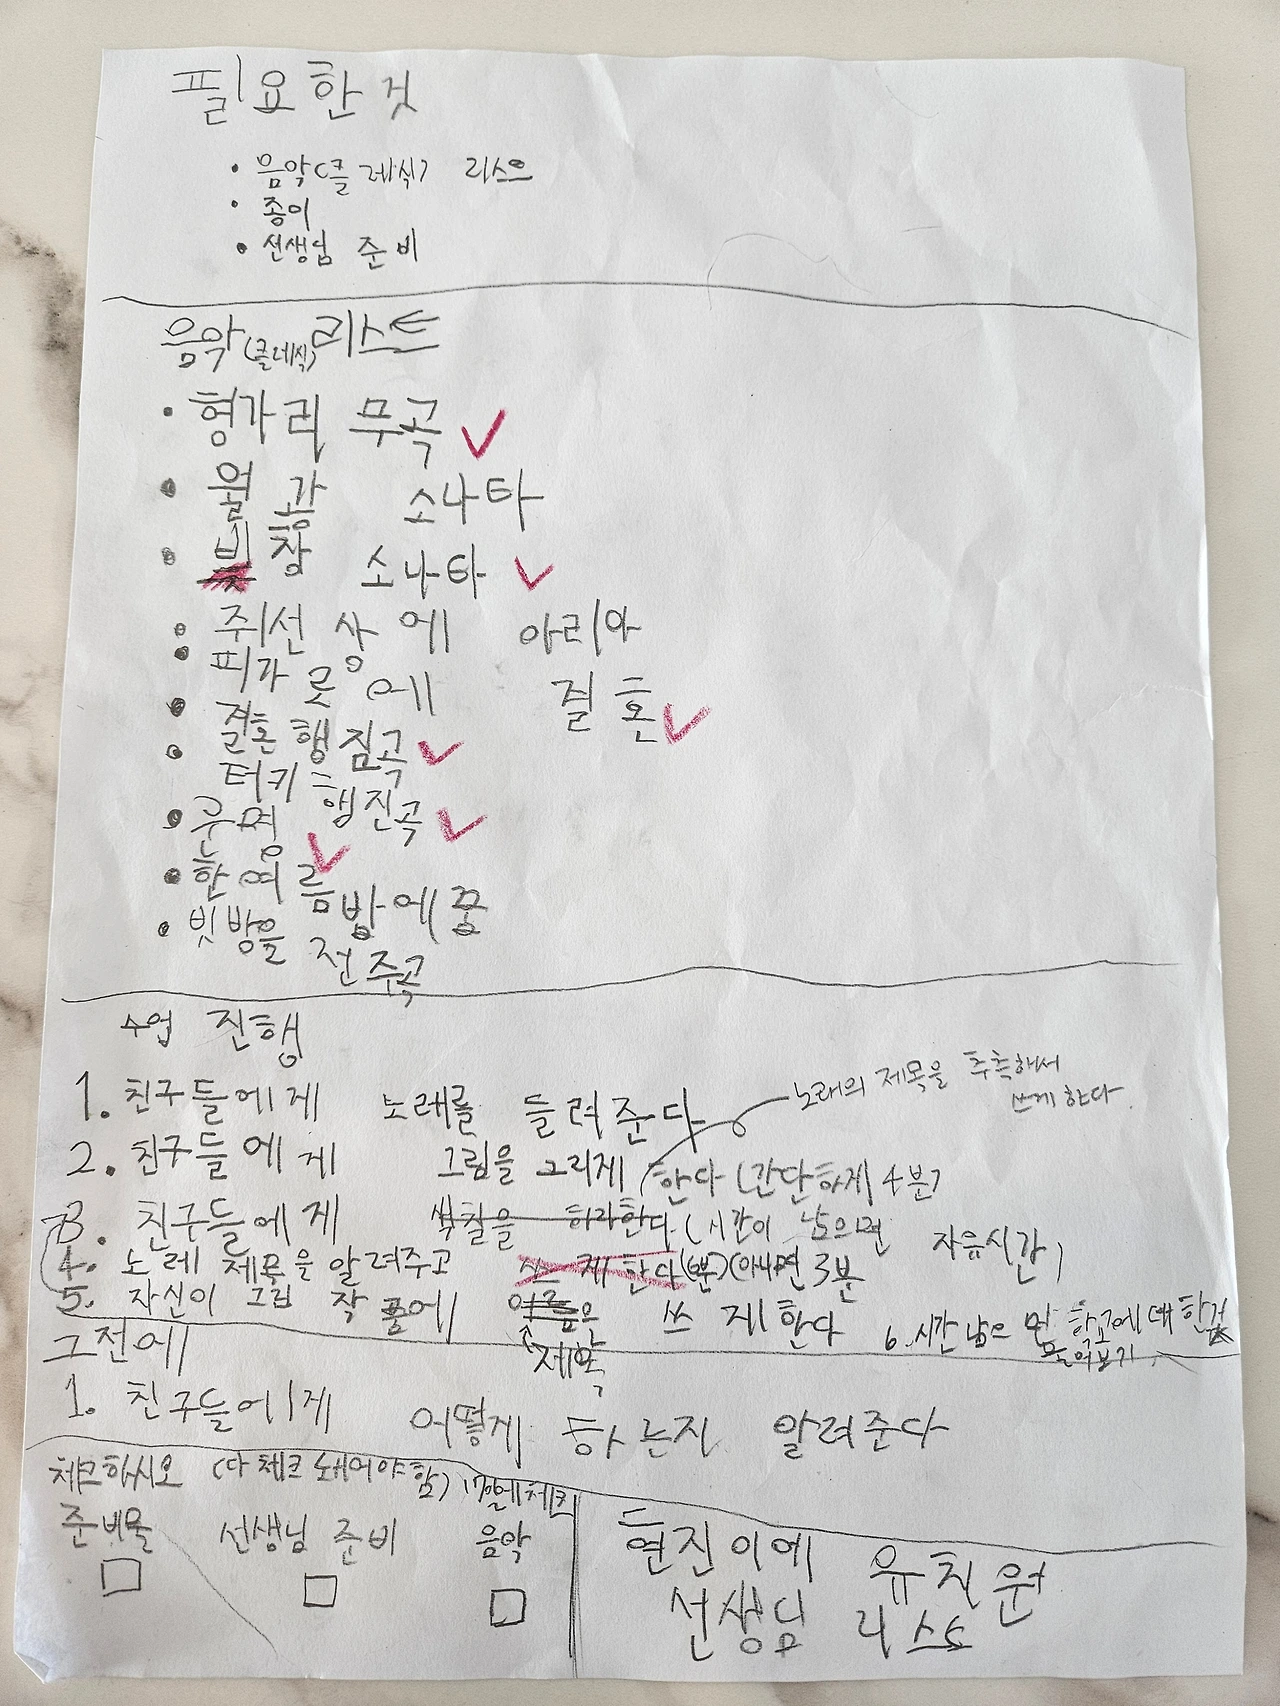 필요한것
• 음악(클레식) 리스으
• 종이
• 선생님 준비
음악(클레식)리스트
• 헝가리 무곡 ✓
• 월광 소나타
• 비창 소나타 ✓
• 쥐선 상에 아리아
• 피가로에 결혼 ✓
• 결혼 행짐곡 ✓
• 터키 행진곡 ✓
• 운명 ✓
• 한여름밤에 꿈
• 빗방울 전주곡
수업 진행
1. 친구들에게 노래를 들려준다
노래의 제목을 추측해서
쓰게 한다.
2. 친구들에게 그림을 그리게 한다 (간단하게 4분)
3. 친구들에게 색칠을 하라한다 (시간이 남으면 자유시간)
4. 노레 제목을 알려주고 쓰게한다(6분)(아니면 3분
5. 자신이 그림 작품에 이름은 쓰게한다
제목
6. 시간 남으면 학교에 대한것
물어보기
그전에
1. 친구들에게 어떻게 하는지 알려준다
체크하시오 (다 체크 돼어야함)
준비물 선생님 준비 음악
□ □ □
현진이에 유치원
선생님 리스트